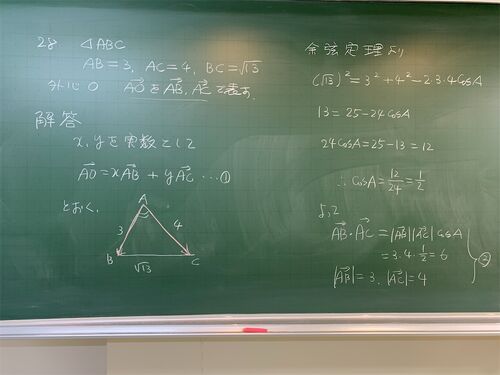 28 △ABC
AB=3, AC=4, BC=√13
外心O AO→をAB→, AC→で表す.
解答
x, yを実数として
AO→=xAB→+yAC→…①
とおく,
A
3
4
B
√13
C
余弦定理より
(√13)²=3²+4²-2・3・4cosA
13=25-24cosA
24cosA=25-13=12
∴cosA=12/24=1/2
よって
AB→・AC→=|AB→||AC→|cosA
=3・4・1/2=6
|AB→|=3, |AC→|=4
②